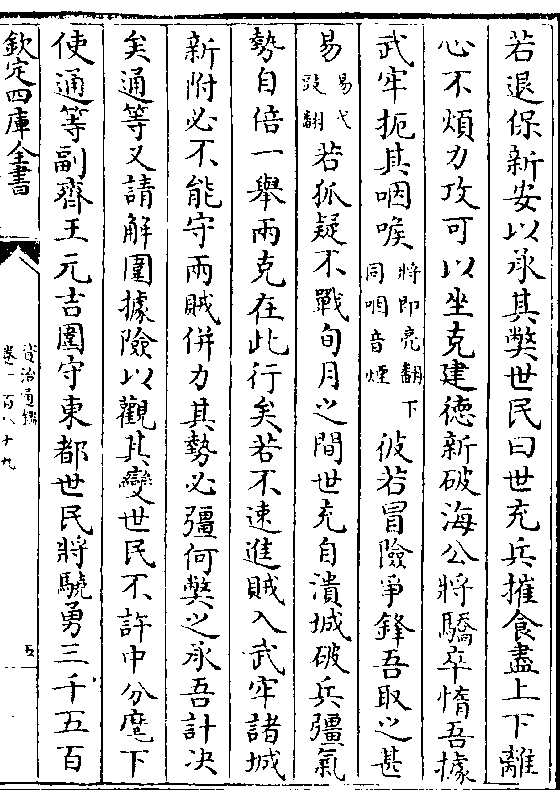 若退保新安以承其弊世民曰世充兵摧食盡上下離
心不煩力攻可以坐克建德新破海公將驕卒惰吾據
武牢扼其咽喉將即亮翻下同咽音煙彼若冒險爭鋒吾取之甚
易易弋豉翻若狐疑不戰旬月之間世充自潰城破兵彊氣
勢自倍一舉兩克在此行矣若不速進賊入武牢諸城
新附必不能守兩賊併力其勢必彊何弊之承吾計決
矣通等又請解圍據險以觀其變世民不許中分麾下
使通等副齊王元吉圍守東都世民將驍勇三千五百
欽定四庫全書
資治通鑑
卷一百八十九
五